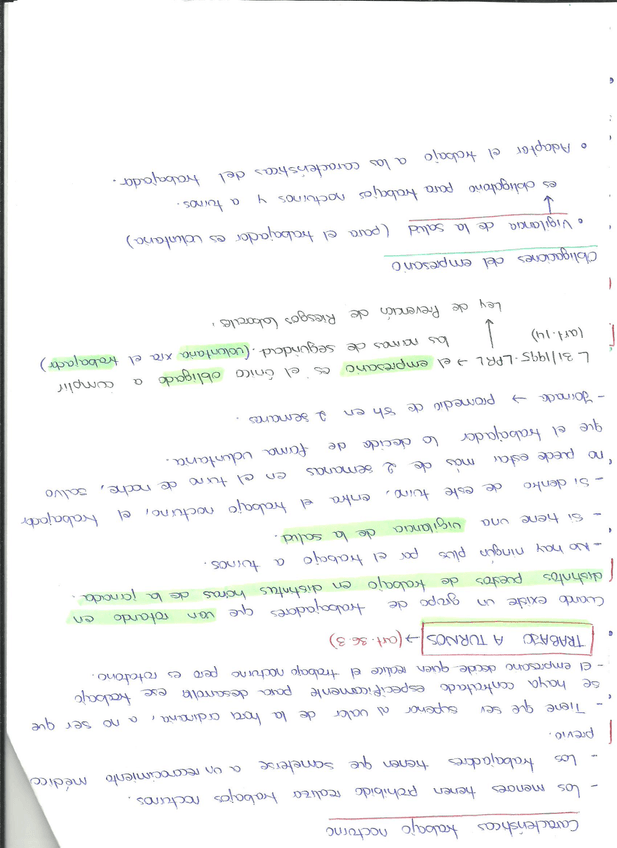 Características trabajo nocturno
- Los menores tienen prohibido realizar trabajos nocturnos.
- Los trabajadores tienen que someterse a un reconocimiento médico
previo.
- Tiene que ser superior al valor de la hora ordinaria, a no ser que
se haya contratado específicamente para desarrollar ese trabajo
- El empresario decide quien realice el trabajo nocturno pero es rotatorio.
TRABAJO A TURNOS → (art. 36.3)
Cuando existe un grupo de trabajadores que van rotando en
distintos puestos de trabajo en distintas horas de la jornada.
- No hay ningún plus por el trabajo a turnos.
- Si tiene una vigilancia de la salud.
- Si dentro de este turno, entra el trabajo nocturno, el trabajador
no puede estar más de 2 semanas en el turno de noche, salvo
que el trabajador lo decida de forma voluntaria.
- Jornada → promedio de 8h en 2 semanas.
L 31/1995 LPRL → el empresario es el único obligado a cumplir
(art. 14) las normas de seguridad. (voluntaria xra el trabajador)
Ley de Prevención de Riesgos Laborales.
Obligaciones del empresario
• Vigilancia de la salud (para el trabajador es voluntaria)
es obligatorio para trabajos nocturnos y a turnos.
• Adaptar el trabajo a las características del trabajador.